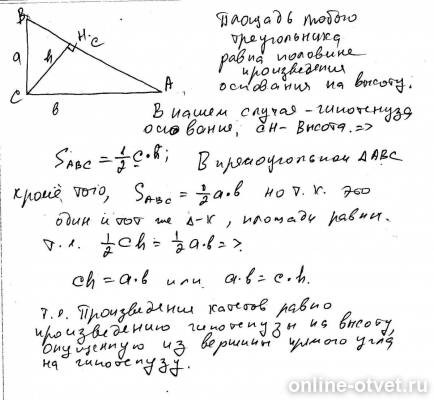 B
a
h
H
C
C
b
A
Площадь любого
треугольника
равна половине
произведения
основания на высоту.
В нашем случае - гипотенуза
основание, CH - высота. =>
S ABC = 1/2 c · h ; В прямоугольном ΔABC
кроме того, S ABC = 1/2 a·b но т.к. это
один и тот же Δ-к, площади равны.
т.е. 1/2 ch = 1/2 a·b =>
ch = a·b или a·b = c·h.
т.е. Произведение катетов равно
произведению гипотенузы на высоту,
опущенную из вершины прямого угла
на гипотенузу.
online-otvet.ru